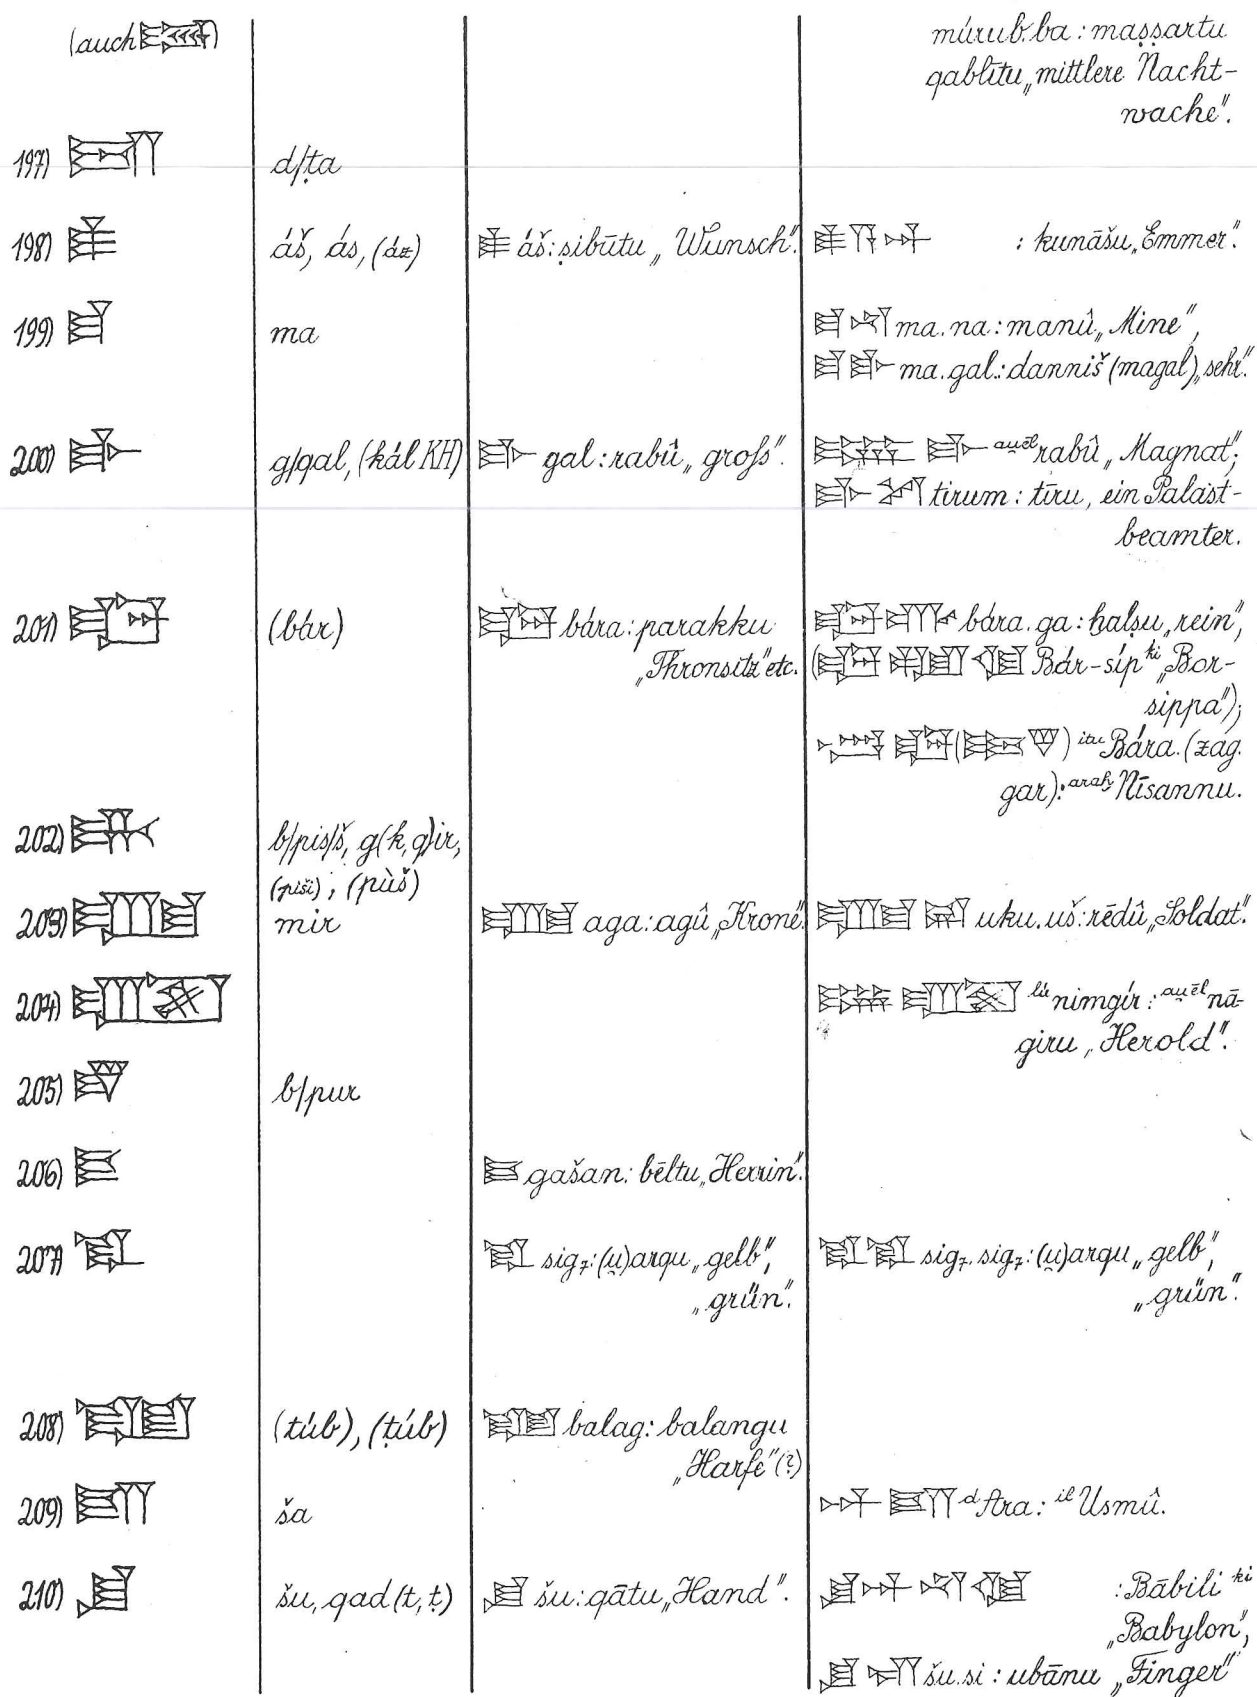 (auch 
múrub.ba: maṣṣartu
qablītu „mittlere Nacht-
wache".
197) d/ṭa
198) áš, ás, (áz) áš: ṣibūtu „Wunsch". : kunāšu „Emmer".
199) ma ma.na: manû „Mine",
ma.gal: danniš (magal) „sehr".
200) g/qal, (kál KH) gal: rabû „groß". au̯ēl rabû „Magnat";
tirum: tīru, ein Palast-
beamter.
201) (bár) bára: parakku bára.ga: ḫalṣu „rein",
„Thronsitz" etc. Bár-síp ki „Bor-
sippa");
itu Bára.(zag.
gar): araḫ Nīsannu.
202) b/pis/š, g(k,q)ir,
(piši), (pùš)
203) mir aga: agû „Krone". uku.uš: rēdû „Soldat".
204) lú nimgír: au̯ēl nā-
giru „Herold".
205) b/pur
206) gašan: bēltu „Herrin".
207) sig₇: (u̯)arqu „gelb", sig₇.sig₇: (u̯)arqu „gelb",
„grün". „grün".
208) (túb), (ṭúb) balag: balangu
„Harfe" (?)
209) ša d Ara: il Usmû.
210) šu, qad (t, ṭ) šu: qātu „Hand". : Bābili ki
„Babylon",
šu.si: ubānu „Finger"